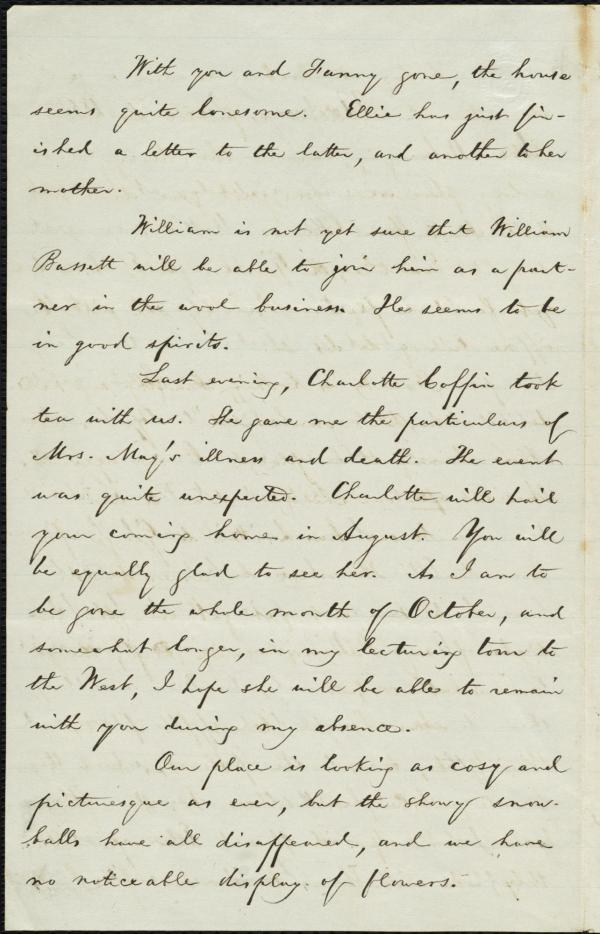 With you and Fanny gone, the house
seems quite lonesome. Ellie has just fin-
ished a letter to the latter, and another to her
mother.
William is not yet sure that William
Bassett will be able to join him as a part-
ner in the wool business. He seems to be
in good spirits.
Last evening, Charlotte Coffin took
tea with us. She gave me the particulars of
Mrs. May's illness and death. The event
was quite unexpected. Charlotte will hail
your coming home in August. You will
be equally glad to see her. As I am to
be gone the whole month of October, and
somewhat longer, in my lecturing tour to
the West, I hope she will be able to remain
with you during my absence.
Our place is looking as cosy and
picturesque as ever, but the showy snow-
balls have all disappeared, and we have
no noticeable display of flowers.